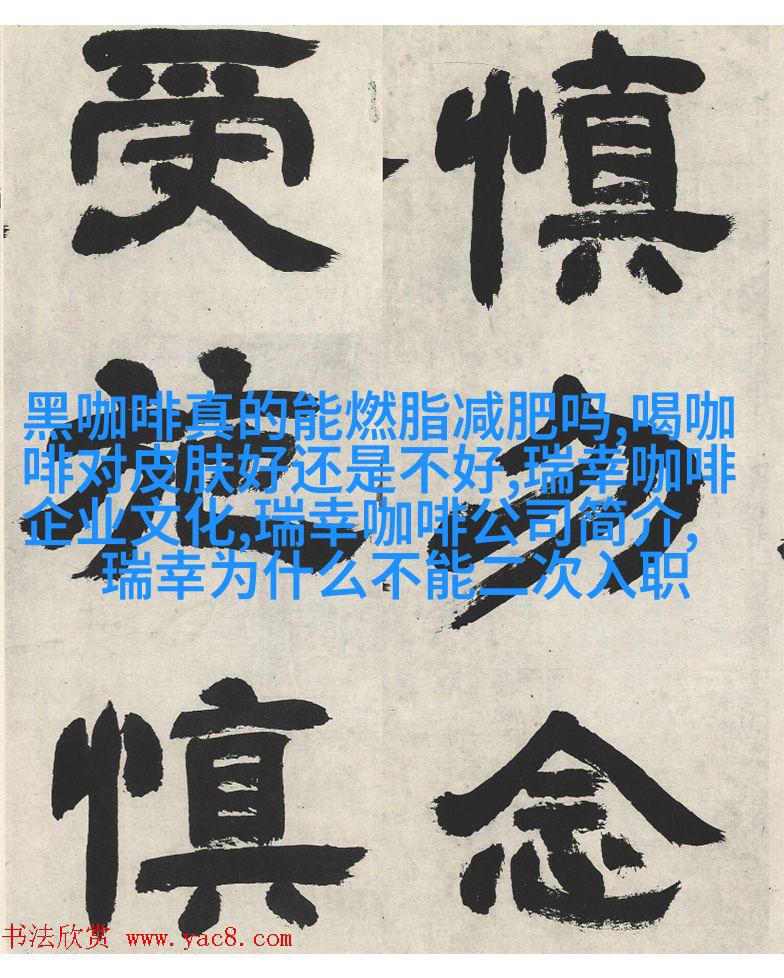 慎勿念
受施慎
黑咖啡真的能燃脂减肥吗,喝咖
啡对皮肤好还是不好,瑞幸咖啡
企业文化,瑞幸咖啡公司简介,
瑞幸为什么不能二次入职
书法欣赏 www.yac8.com